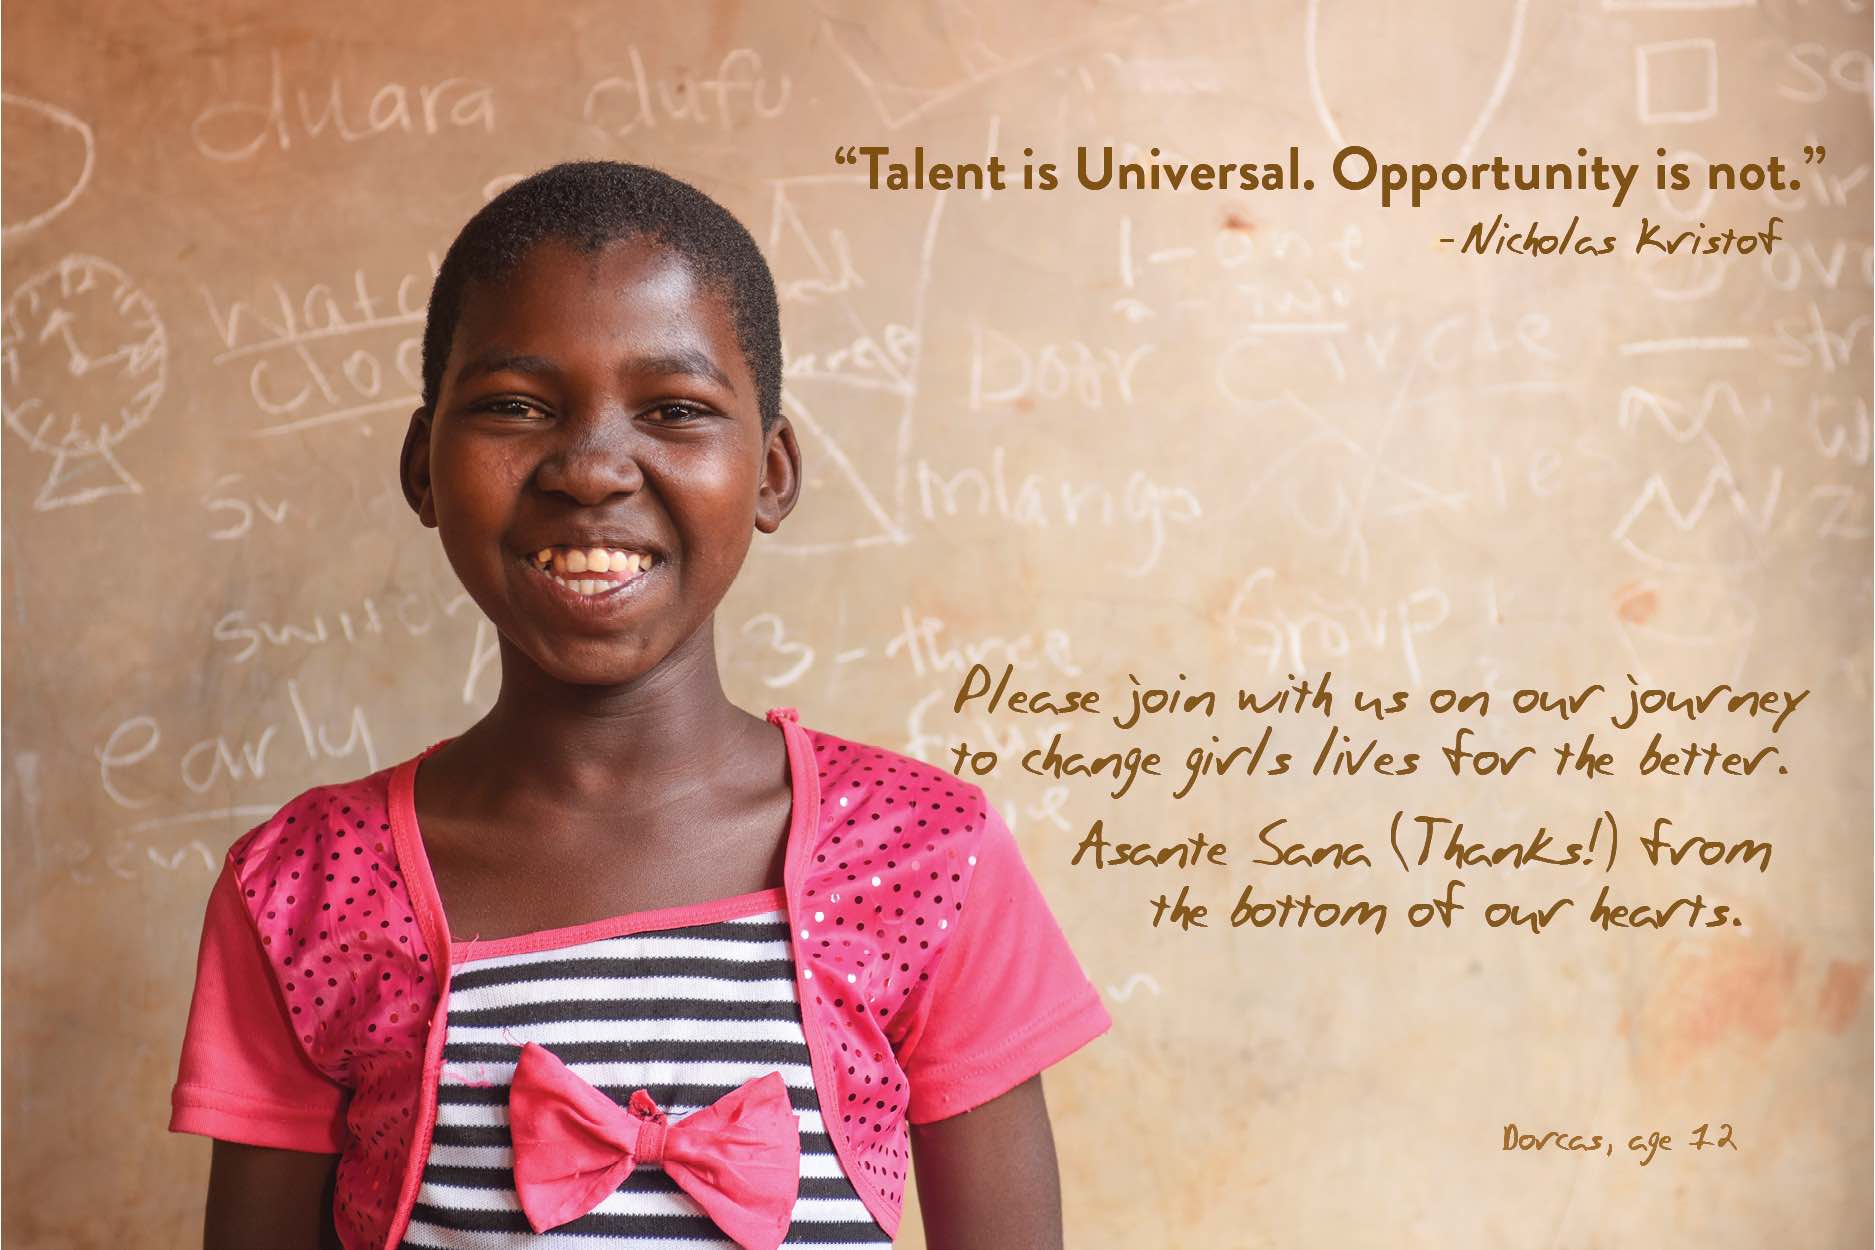 duara dufu
sq
“Talent is Universal. Opportunity is not.”
-Nicholas Kristof
1 - one
two
Watc
cloc
Door Circle
mlango
switch
3 - three
Group
early
Please join with us on our journey
to change girls lives for the better.
Asante Sana (Thanks!) from
the bottom of our hearts.
Dorcas, age 12